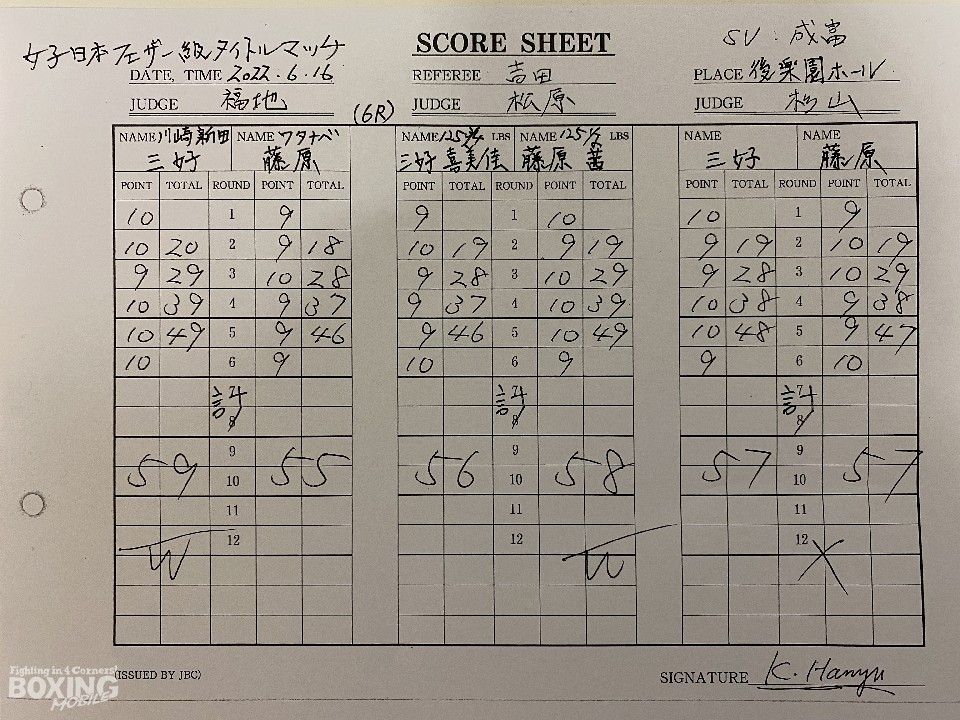 女子日本フェザー級タイトルマッチ
SCORE SHEET
SV:成富
DATE, TIME 2022.6.16
REFEREE 吉田
PLACE 後楽園ホール
JUDGE 福地
(6R)
JUDGE 松原
JUDGE 杉山
NAME 川崎新田 NAME ワタナベ
三好 藤原
NAME 125 LBS NAME 125 LBS
三好 喜美佳 藤原 茜
NAME NAME
三好 藤原
POINT TOTAL ROUND POINT TOTAL POINT TOTAL ROUND POINT TOTAL POINT TOTAL ROUND POINT TOTAL
10 1 9 9 1 10 10 1 9
10 20 2 9 18 10 19 2 9 19 9 19 2 10 19
9 29 3 10 28 9 28 3 10 29 9 28 3 10 29
10 39 4 9 37 9 37 4 10 39 10 38 4 9 38
10 49 5 9 46 9 46 5 10 49 10 48 5 9 47
10 6 9 10 6 9 9 6 10
計 計 計
8 8 8
9 9 9
59 10 55 56 10 58 57 10 57
11 11 11
12 12 12
W W X
(ISSUED BY JBC)
SIGNATURE K. Hanyu
Fighting in 4 Corners!
BOXING
MOBILE